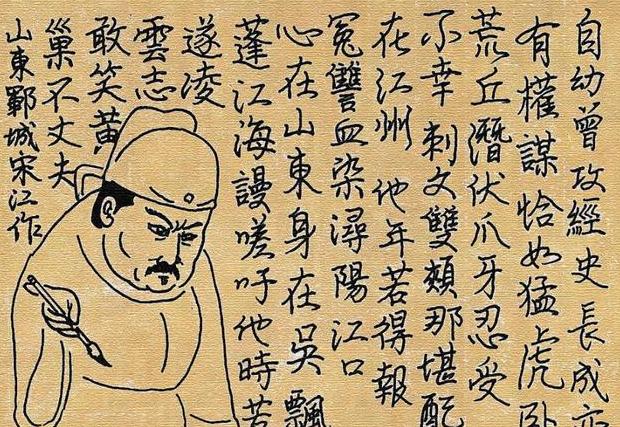 自幼曾攻經史長成亦
有權謀恰如猛虎卧
荒丘潛伏爪牙忍受
不幸刺文雙頰那堪配
在江州他年若得報
冤讐血染潯陽江口
心在山東身在吳飄
蓬江海謾嗟吁他時若
遂凌
雲志
敢笑黃
巢不丈夫
山東鄆城宋江作